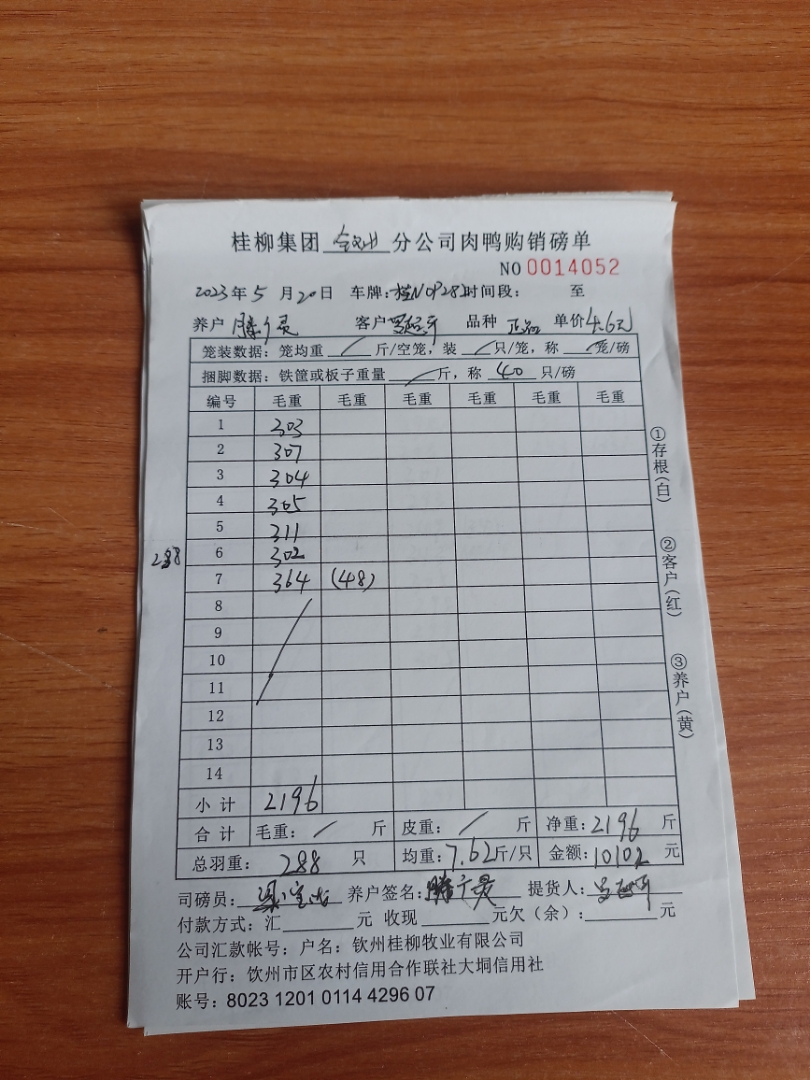 桂柳集团 钦州 分公司肉鸭购销磅单
NO 0014052
2023年5月20日 车牌:桂NOP282 时间段: 至
养户 客户 品种 正品 单价4.6元
笼装数据:笼均重 / 斤/空笼,装 / 只/笼,称 / 笼/磅
捆脚数据:铁筐或板子重量 / 斤,称 40 只/磅
编号 毛重 毛重 毛重 毛重 毛重 毛重
1 303
2 307
3 304
4 305
5 311
288
6 302
7 364 (48)
8
9
10
11
12
13
14
小计 2196
合计 毛重: / 斤 皮重: / 斤 净重:2196 斤
总羽重: 288 只 均重:7.62斤/只 金额:10102 元
①存根(白)
②客户(红)
③养户(黄)
司磅员: 养户签名: 提货人:
付款方式:汇 元 收现 元欠(余): 元
公司汇款帐号:户名:钦州桂柳牧业有限公司
开户行:钦州市区农村信用合作联社大垌信用社
账号:8023 1201 0114 4296 07